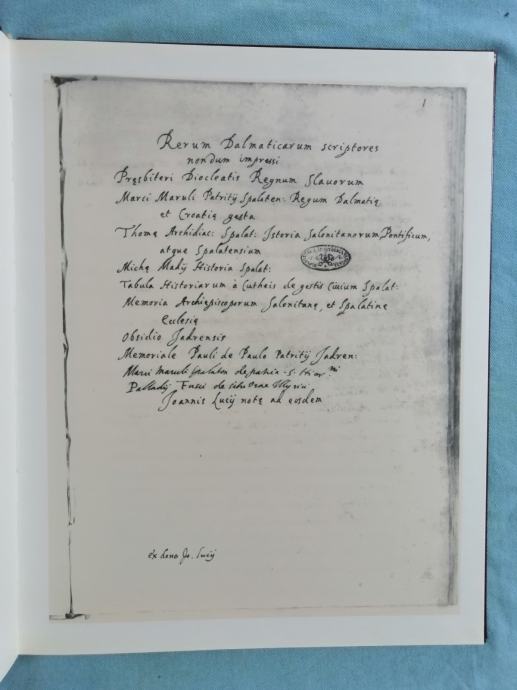 1
Rerum Dalmaticarum scriptores
nondum impressi
Pręsbiteri Diocleatis Regnum Slauorum
Marci Maruli Patritij Spalaten: Regum Dalmatię
et Croatię gesta
Thomę Archidiac: Spalat: Istoria Salonitanorum Pontificum,
atque Spalatensium
Michę Madij Historia Spalat:
Tabula Historiarum à Cutheis de gestis Ciuium Spalat:
Memoria Archiepiscoporum Salonitanę, et Spalatinę
Ecclesię
Obsidio Jadrensis
Memoriale Pauli de Paulo Patritij Jadren:
Marci maruli spalaten de patria
Palladij Fusci de situ orae Illyrici
Joannis Lucij notę ad eosdem
ex dono Jo. Lucij